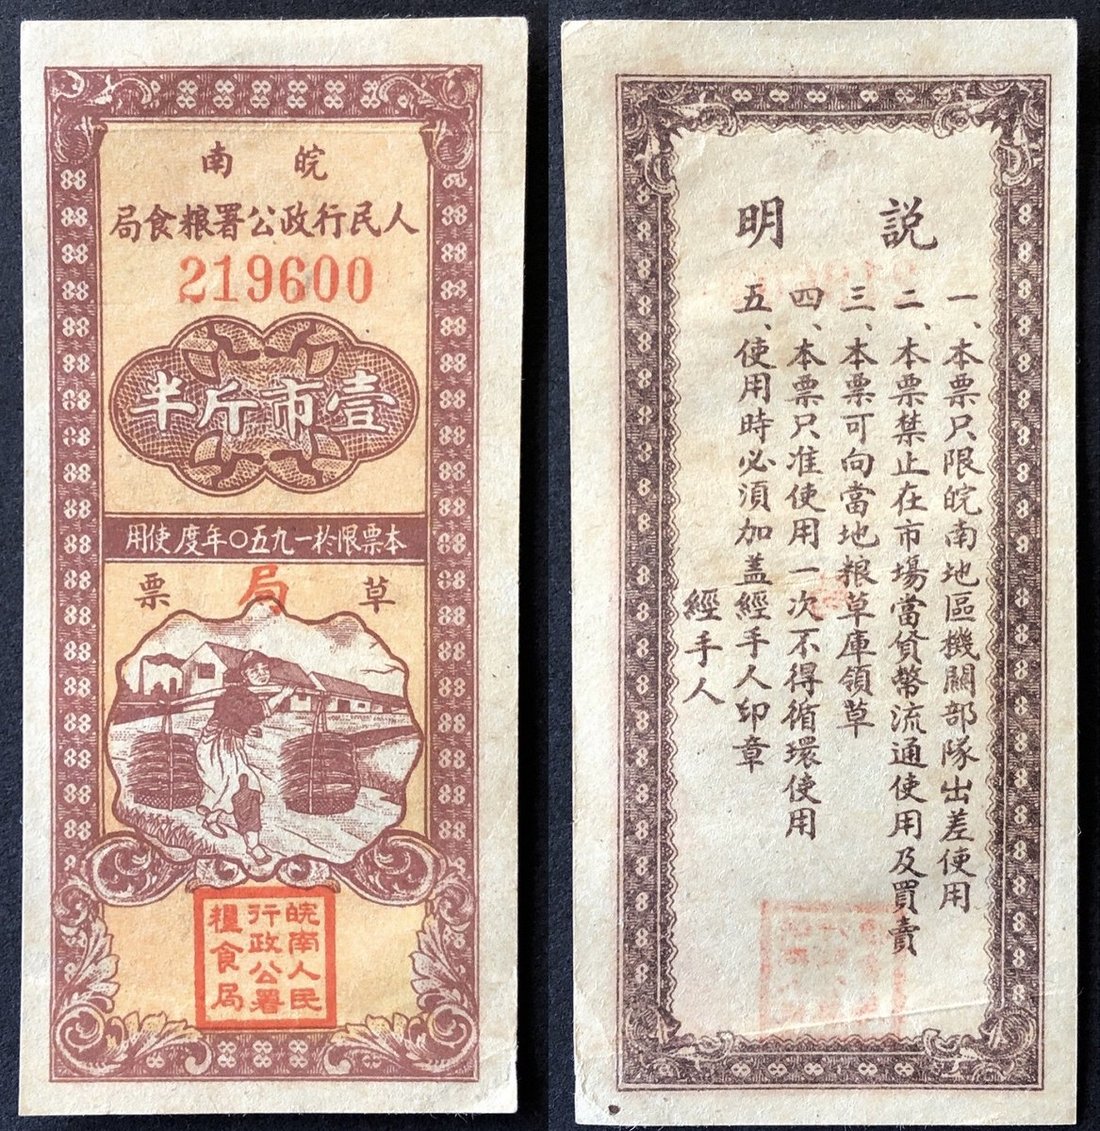 皖南
人民行政公署粮食局
219600
壹市斤半
本票限扵一九五〇年度使用
草票
局
皖南人民
行政公署
糧食局
説明
一、本票只限皖南地區機關部隊出差使用
二、本票禁止在市場當貨幣流通使用及買賣
三、本票可向當地粮草庫領草
四、本票只准使用一次不得循環使用
五、使用時必須加盖經手人印章
經手人